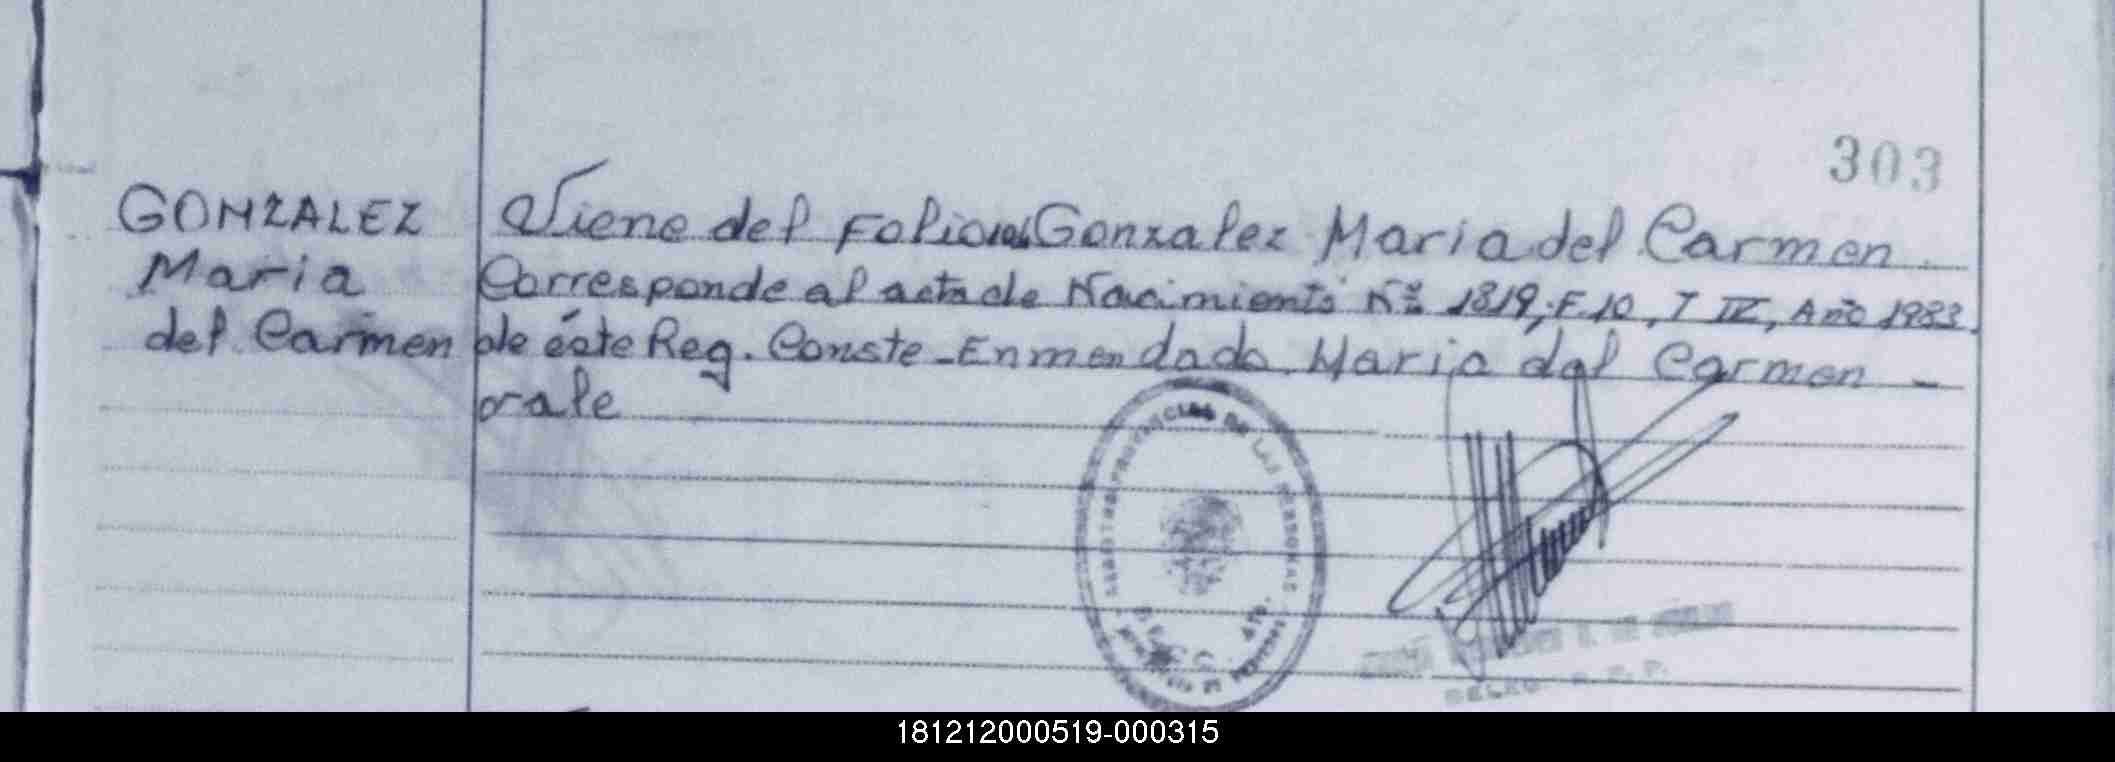 303
GONZALEZ
Maria
del Carmen
Viene del Folio Gonzalez Maria del Carmen
Corresponde al acta de Nacimiento Nº 1819, F.10, T IV, Año 1983.
de éste Reg. Conste - Enmendado Maria del Carmen -
vale
PROVINCIAL DE LAS PERSONAS
181212000519-000315